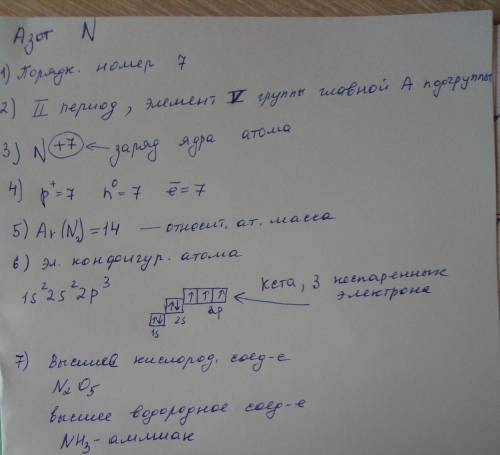 Азот N
1) Порядк. номер 7
2) II период, элемент V группы главной А подгруппы
3) N +7 ← заряд ядра атома
4) p⁺=7 n⁰=7 ē=7
5) Ar(N₂)=14 — относит. ат. масса
6) эл. конфигур. атома
1s²2s²2p³
кста, 3 неспаренных
электрона
↑↓ ↑↓ ↑ ↑ ↑
1s 2s 2p
7) Высшее кислород. соед-е
N₂O₅
высшее водородное соед-е
NH₃ - аммиак